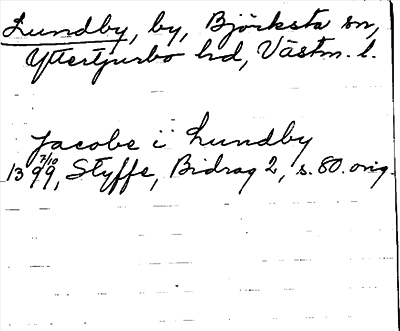 Lundby, by, Björksta sn,
Yttertjurbo hd, Västm. l.
Jacobe i Lundby
1399 7/10, Styffe, Bidrag 2, s. 80. orig.